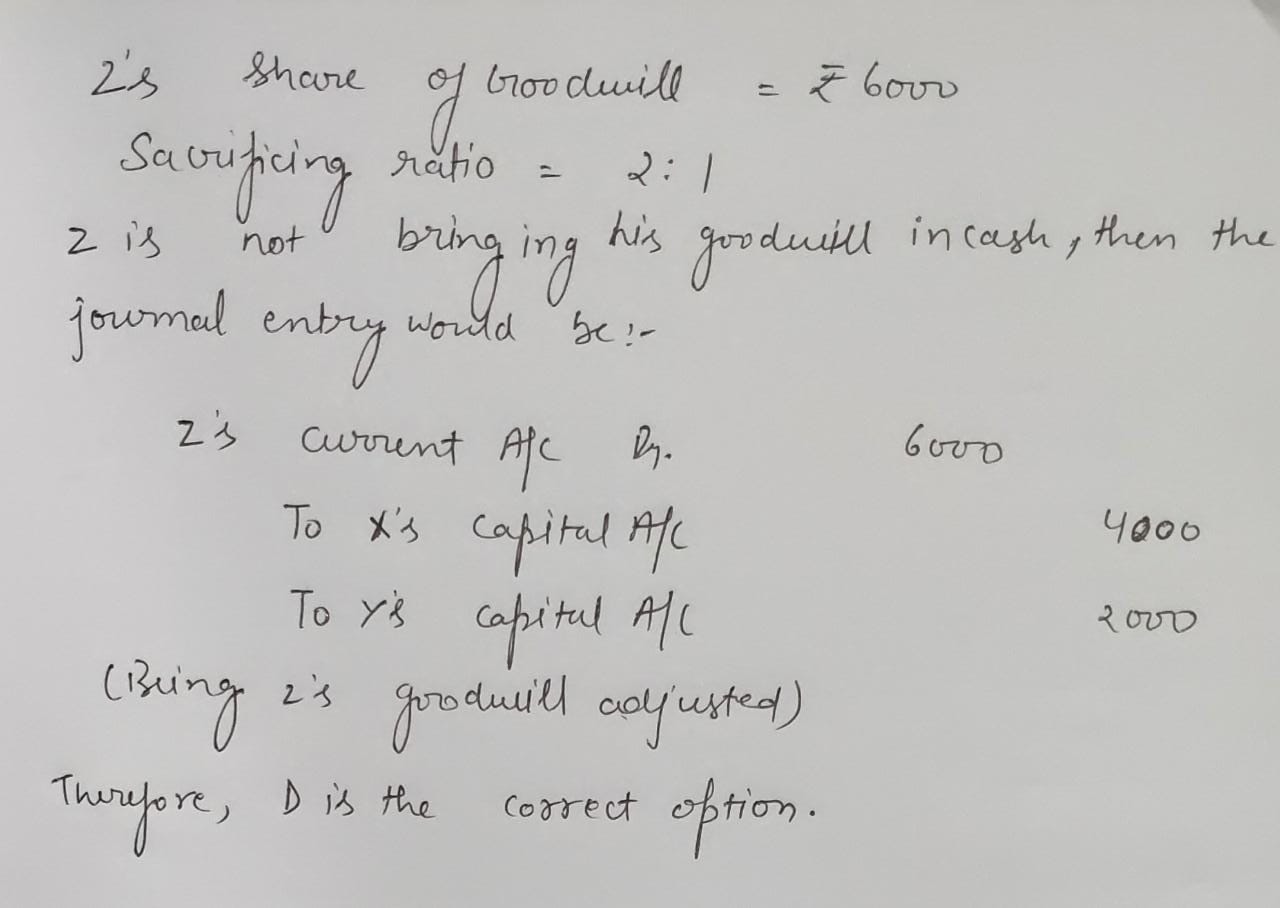 Z's share of Goodwill = ₹ 6000
Sacrificing ratio = 2:1
Z is not bringing his goodwill in cash, then the
journal entry would be:-
Z's current A/c Dr. 6000
To X's capital A/c 4000
To Y's capital A/c 2000
(Being Z's goodwill adjusted)
Therefore, D is the correct option.